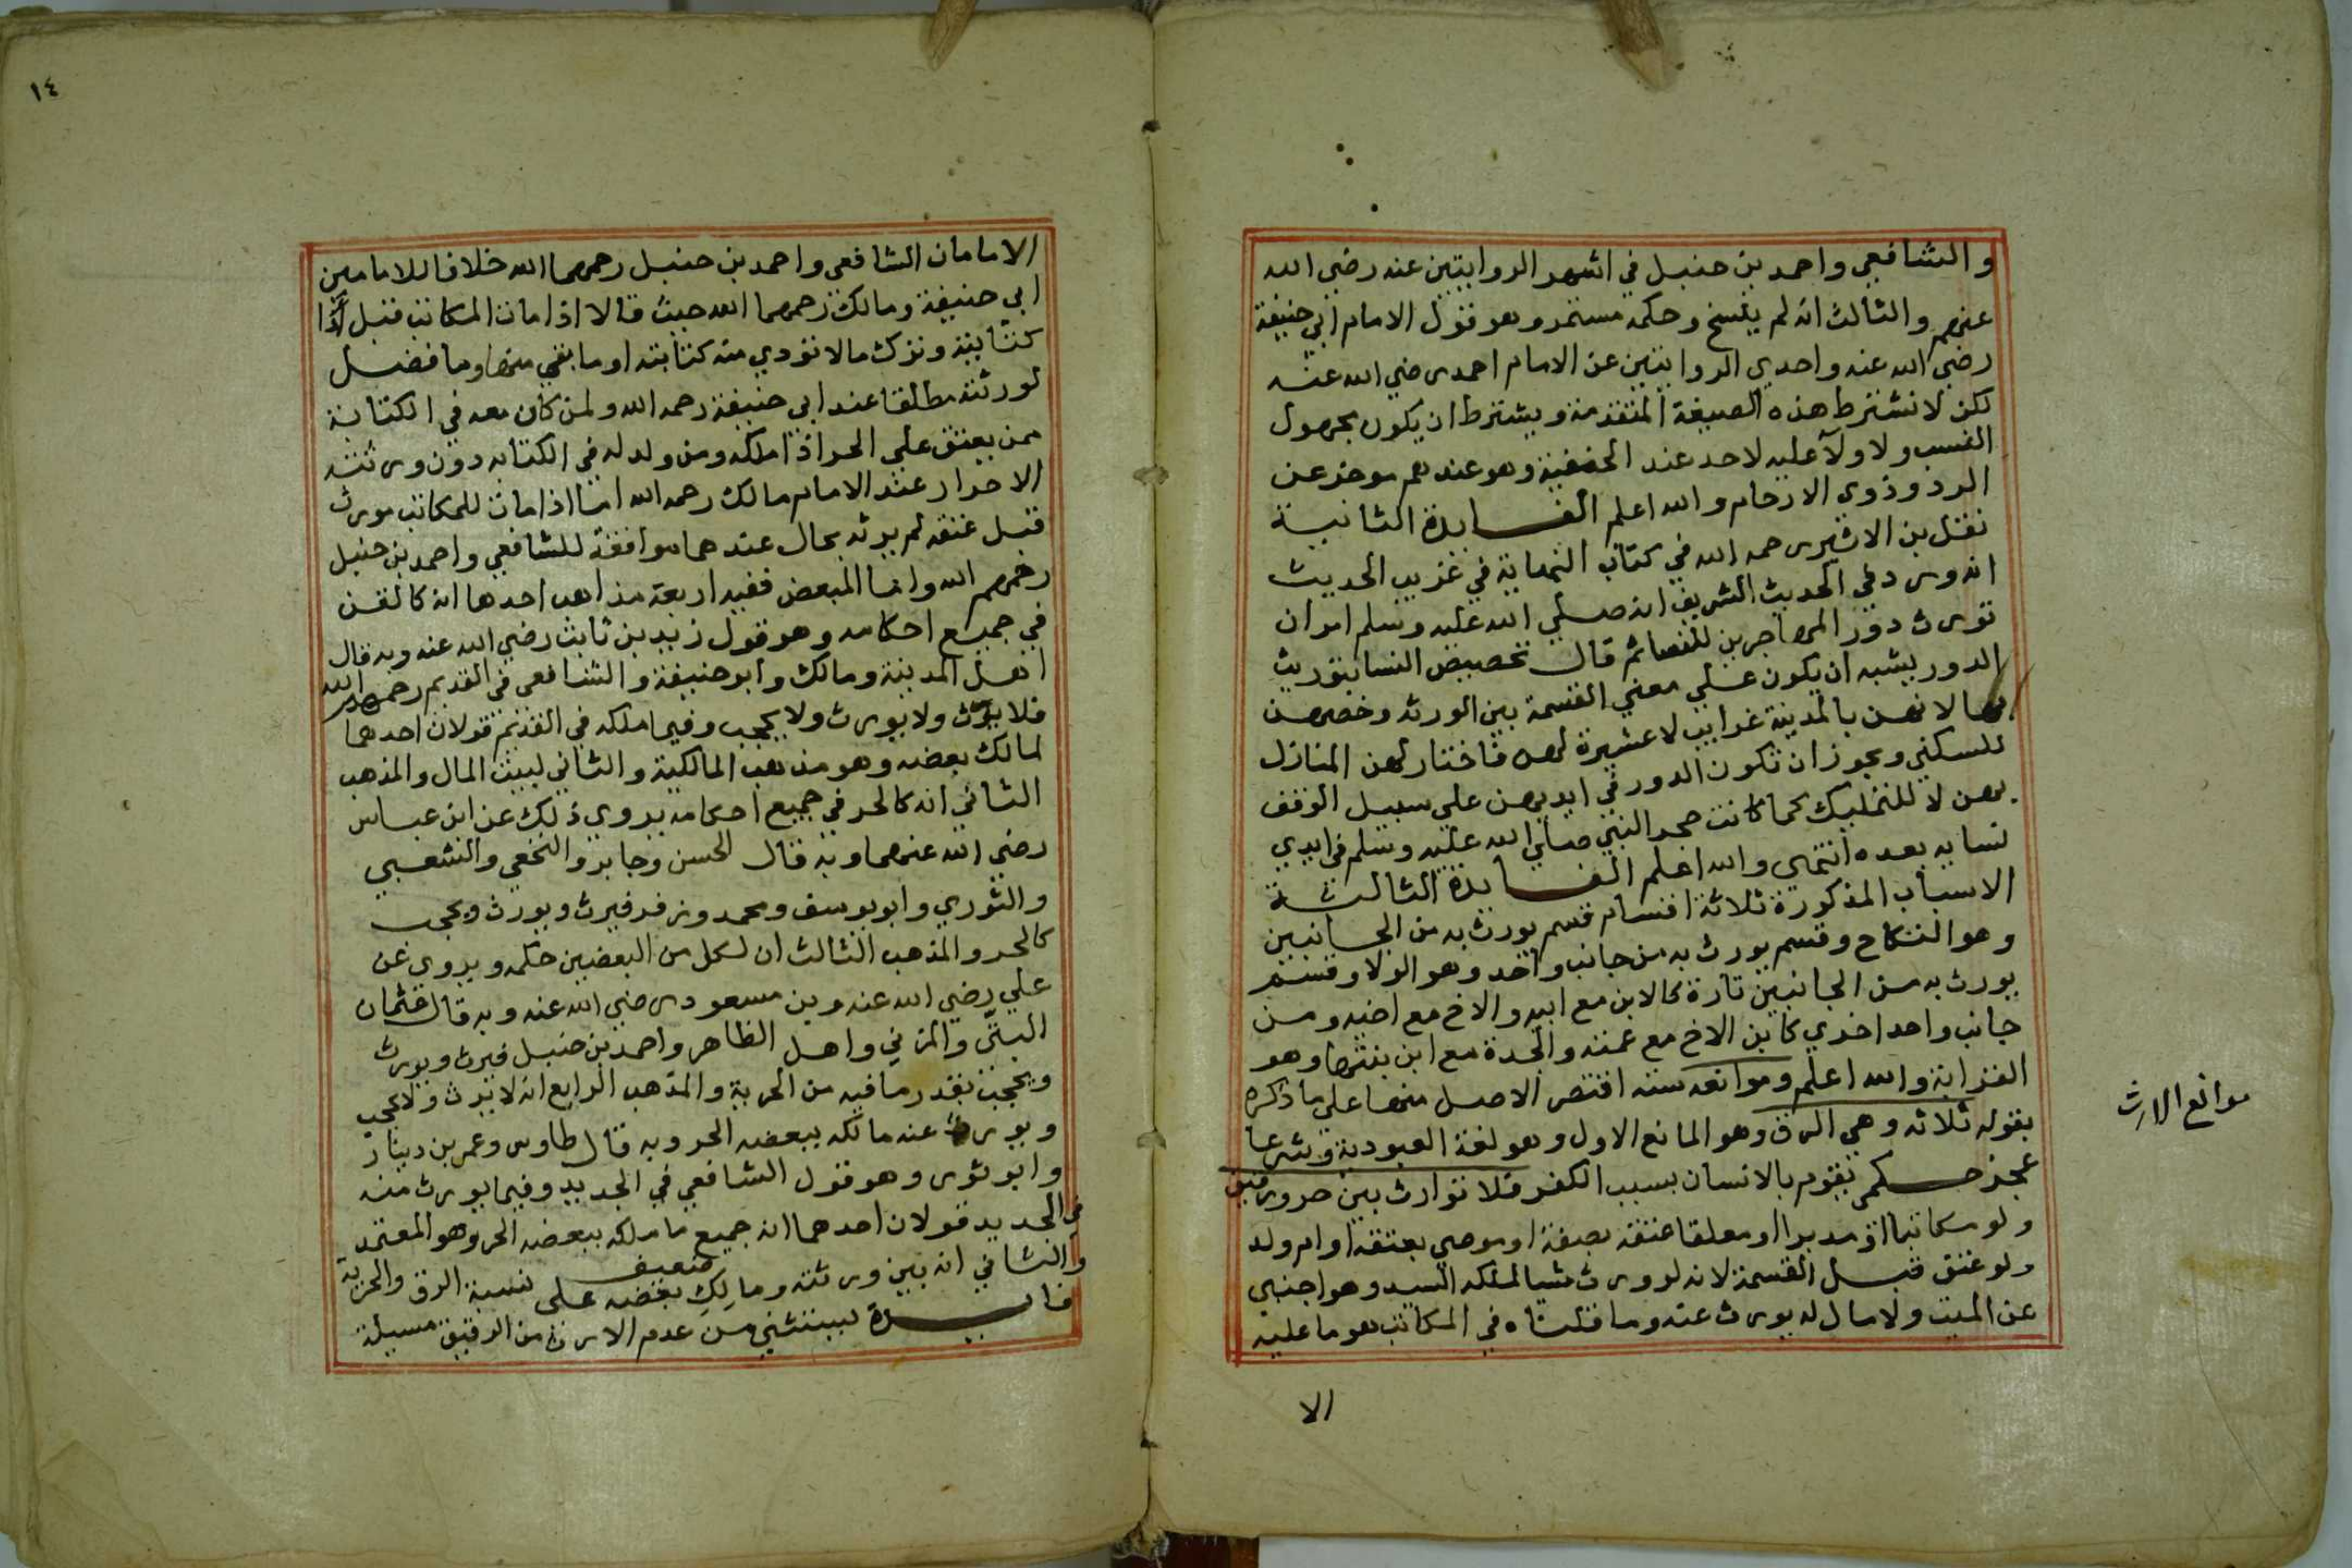 والشافعي واحمد بن حنبل في اشهر الروايتين عنه رضي الله
عنهم والثالث انه لم ينسخ وحكمه مستمر وهو قول الامام ابي حنيفة
رضي الله عنه واحدي الروايتين عن الامام احمد رضي الله عنه
لكن لا تشترط هذه الصيغة المتقدمة ويشترط ان يكون مجهول
النسب ولا ولآ عليه لاحد عند الحنفية وهو عندهم موخر عن
الرد وذوي الارحام والله اعلم الفايدة الثانية
نقل بن الاثير رحمه الله في كتاب النهاية في غريب الحديث
انه ورد في الحديث الشريف انه صلي الله عليه وسلم امر ان
تورث دور المهاجرين للنسا ثم قال تخصيص النسا بتوريث
الدور يشبه ان يكون علي معني القسمة بين الورثه وخصهن
بها لانهن بالمدينة غرايب لا عشيرة لهن فاختار لهن المنازل
للسكني ويجوز ان تكون الدور في ايديهن علي سبيل الوقف
بهن لا للتمليك كما كانت حجر النبي صلي الله عليه وسلم في ايدي
نسايه بعده انتهى والله اعلم الفايدة الثالثة
الاسباب المذكورة ثلاثة اقسام قسم يورث به من الجانبين
وهو النكاح وقسم يورث به من جانب واحد وهو الولا وقسم
يورث به من الجانبين تارة كالابن مع ابيه والاخ مع اخيه ومن
جانب واحد اخري كابن الاخ مع عمته والجدة مع ابن بنتها وهو
القرابة والله اعلم وموانعه سته اقتصر الاصل منها علي ما ذكره
بقوله ثلاثه وهي الرق وهو المانع الاول وهو لغة العبودية وشرعا
عجز حكمي يقوم بالانسان بسبب الكفر فلا توارث بين حر ورقيق
ولو مكاتبا او مدبرا او معلقا عتقه بصفة او موصي بعتقه او ام ولد
ولو عتق قبل القسمة لانه لو ورث شيا لملكه السيد وهو اجنبي
عن الميت ولا مال له يورث عنه وما قلناه في المكاتب هو ما عليه
الا
موانع الارث
١٤
الامامان الشافعي واحمد بن حنبل رحمهما الله خلافا للامامين
ابي حنيفة ومالك رحمهما الله حيث قالا اذا مات المكاتب قبل اذا
كتابته وترك مالا تودي منه كتابته او ما بقي منها وما فضل
لورثته مطلقا عند ابي حنيفة رحمه الله ولمن كان معه في الكتابة
ممن يعتق علي الحر اذا ملكه ومن ولد له في الكتابه دون ورثته
الاحرار عند الامام مالك رحمه الله اما اذا مات للمكاتب مورث
قبل عتقه لم يرثه بحال عندهما موافقة للشافعي واحمد بن حنبل
رحمهم الله واما المبعض ففيه اربعة مذاهب احدها انه كالقن
في جميع احكامه وهو قول زيد بن ثابت رضي الله عنه وبه قال
اهل المدينة ومالك وابو حنيفة والشافعي في القديم رحمهم الله
فلا يرث ولا يورث ولا يحجب وفيما ملكه في القديم قولان احدهما
لمالك بعضه وهو مذهب المالكية والثاني لبيت المال والمذهب
الثاني انه كالحر في جميع احكامه يروي ذلك عن ابن عباس
رضي الله عنهما وبه قال الحسن وجابر والنخعي والشعبي
والثوري وابو يوسف ومحمد وزفر فيرث ويورث ويحجب
كالحر والمذهب الثالث ان لكل من البعضين حكمه ويروي عن
علي رضي الله عنه وبن مسعود رضي الله عنه وبه قال عثمان
البتّى والمزني واهل الظاهر واحمد بن حنبل فيرث ويورث
ويحجب بقدر ما فيه من الحرية والمذهب الرابع انه لا يرث ولا يحجب
ويورث عنه ما ملكه ببعضه الحر وبه قال طاوس وعمر بن دينار
وابو ثور وهو قول الشافعي في الجديد وفيما يورث منه
في الجديد قولان احدهما انه جميع ما ملكه ببعضه الحر وهو المعتمد
والثاني انه بين ورثته ومالك بعضه على نسبة الرق والحرية
ضعيف
فايدة يستثني من عدم الارث من الرقيق مسيلة